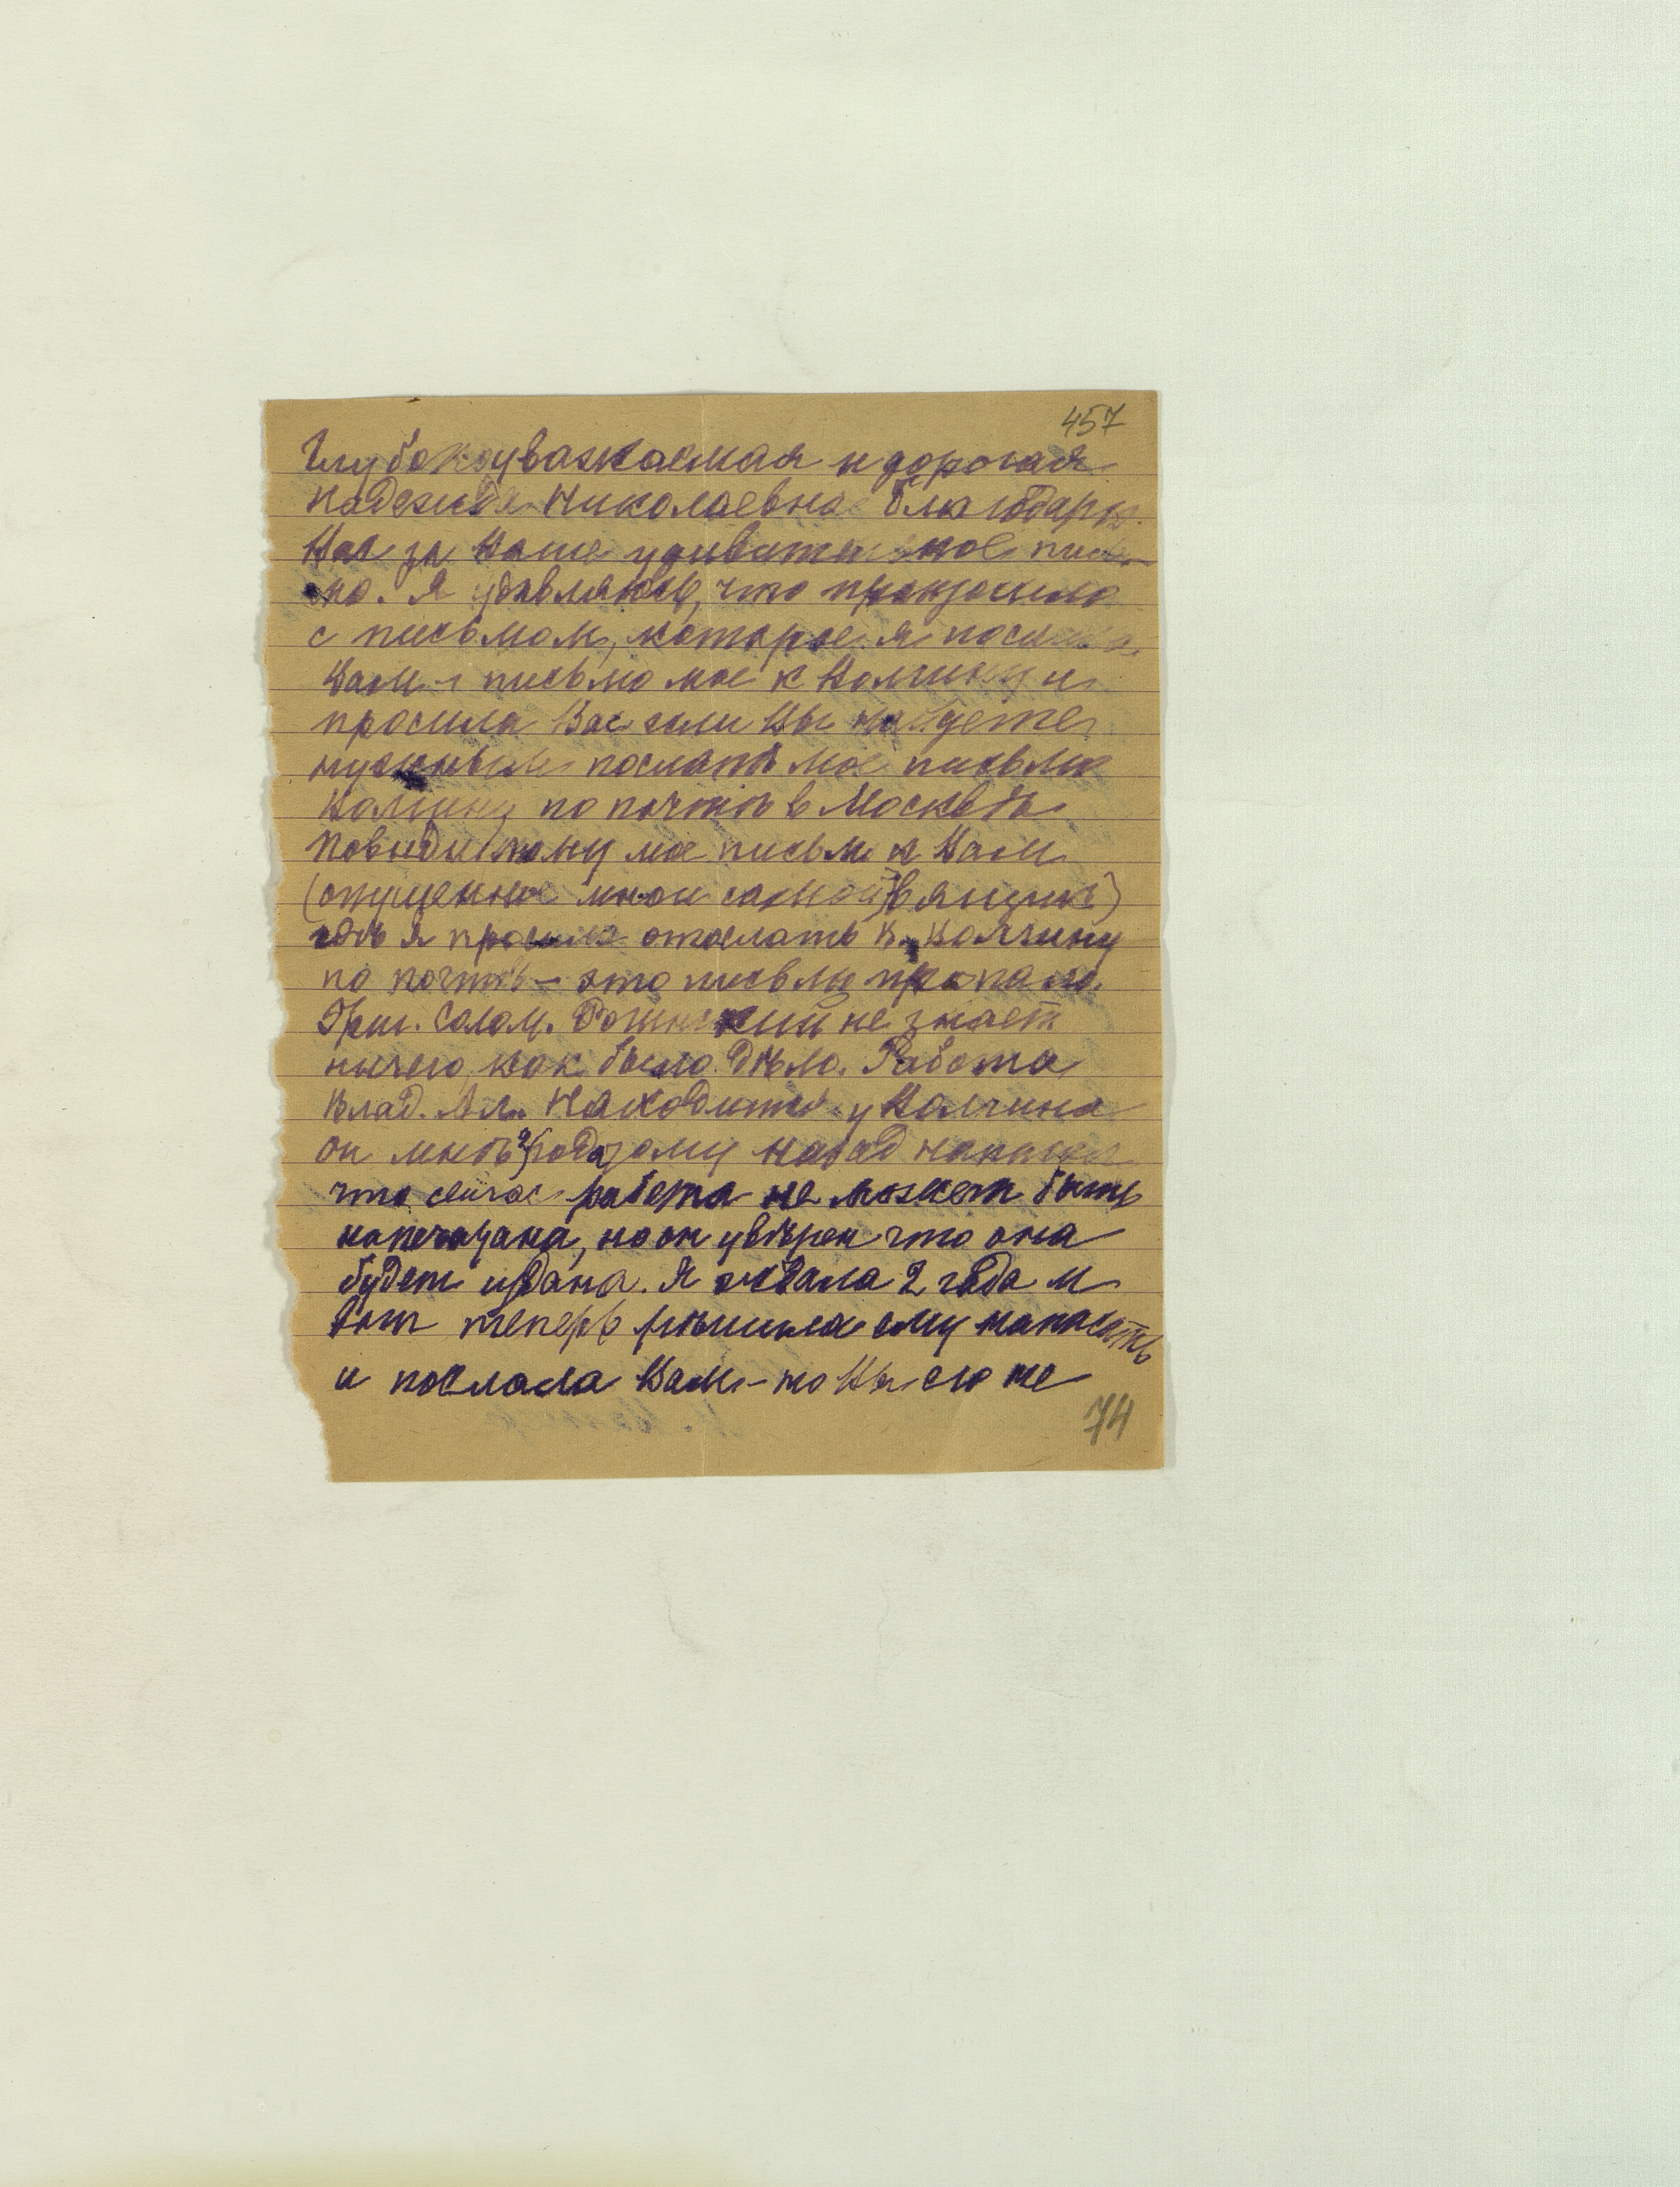 457
Глубокоуважаемая и дорогая
Надежда Николаевна благодарю
Вас за Ваше удивительное пись-
мо. Я удивляюсь, что произошло
с письмом, которое я послала
Вам - письмо мое к Волчину и
просила Вас если Вы найдете
нужным послать мое письмо
Волчину по почтѣ в Москвѣ
Повидимому мое письмо к Вам
(опущенное мной самой в ящик)
гдѣ я просила отослать к Волчину
по почтѣ - это письмо пропало.
Григ. Солом. не знает
ничего как было дѣло. Работа
Влад. Ал. находится у Волчина
он мнѣ 2 года тому назад написал
что сейчас работа не может быть
напечатана, но он увѣрен что она
будет издана. Я ждала 2 года и
вот теперь рѣшила ему написать
и послала Вам - но Вы его не
74